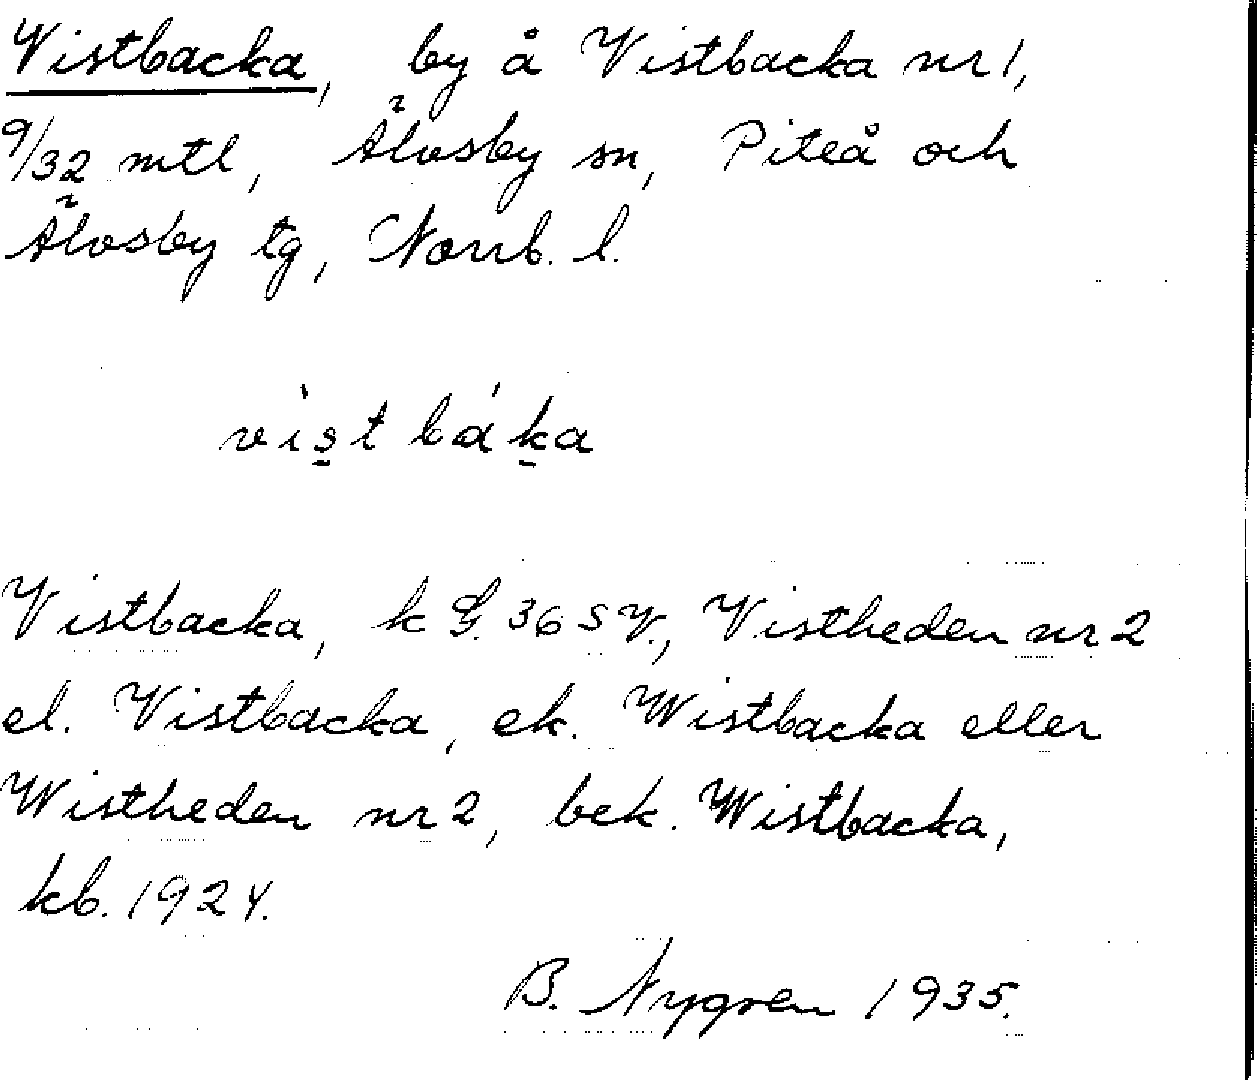 Vistbacka, by å Vistbacka nr 1,
9/32 mtl, Älvsby sn, Piteå och
Älvsby tg, Norrb. l.
vìst báka
Vistbacka, k G. 36 S V., Vistheden nr 2
el. Vistbacka, ek. Wistbacka eller
Wistheden nr 2, bek. Wistbacka,
kb. 1924.
B. Nygren 1935.